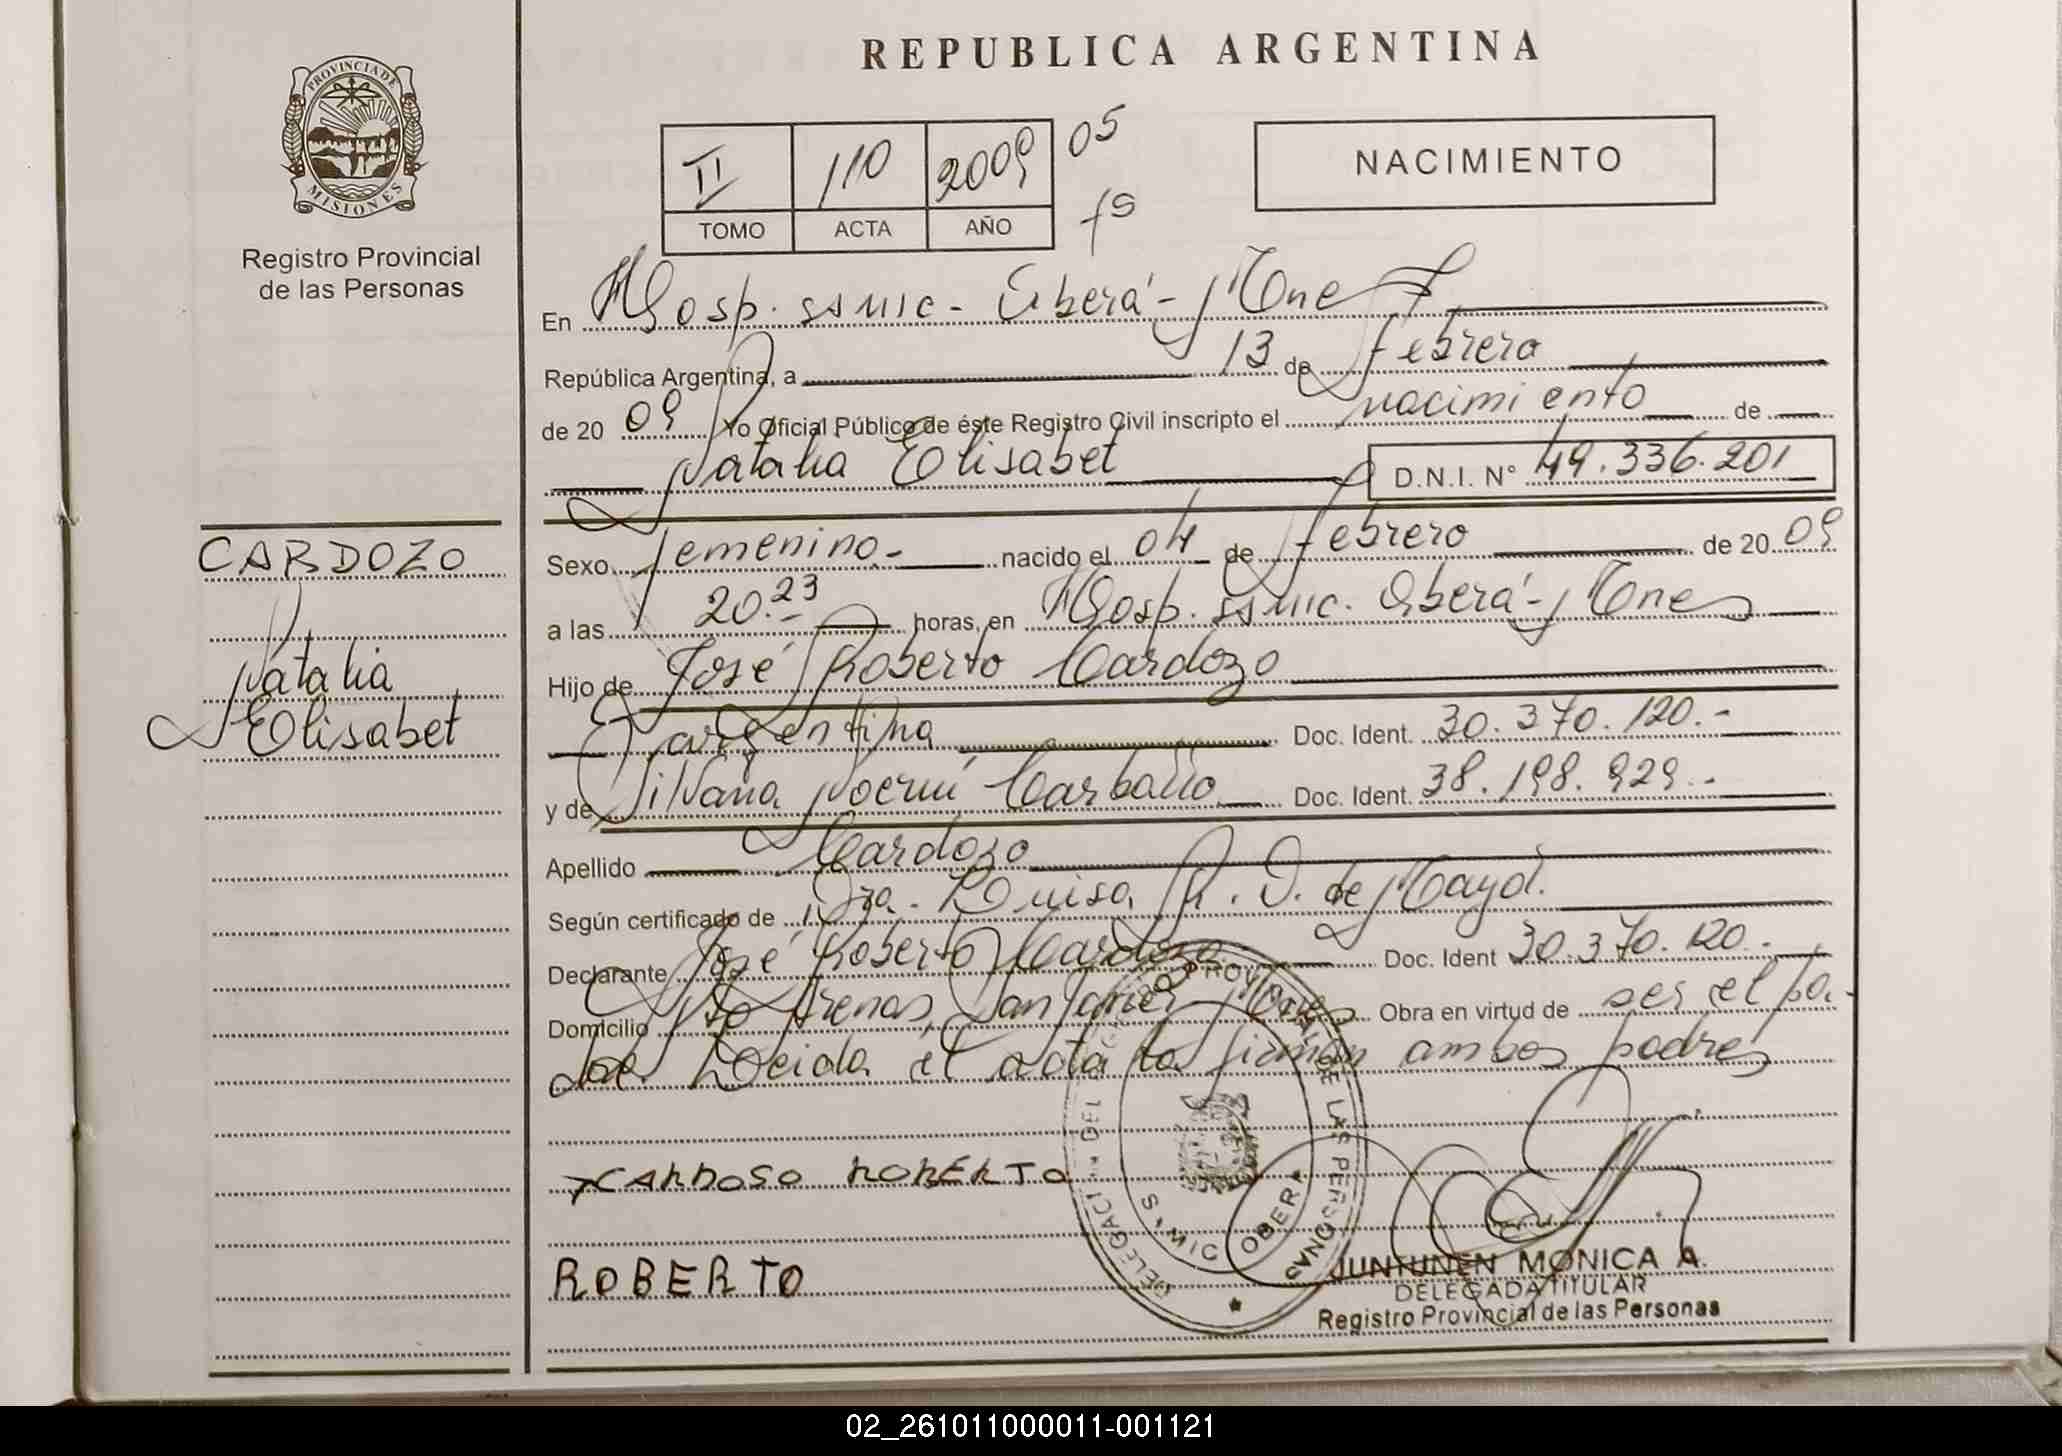 PROVINCIA DE
MISIONES
Registro Provincial
de las Personas
REPUBLICA ARGENTINA
II 110 2009 05
TOMO ACTA AÑO
NACIMIENTO
En Hosp. SAMIC - Oberá - Mnes
República Argentina, a 13 de febrero
de 20 09 Yo Oficial Público de éste Registro Civil inscripto el nacimiento de
Natalia Elisabet D.N.I. N° 49.336.201
CARDOZO
Natalia
Elisabet
Sexo femenino.- nacido el 04 de febrero de 20 09
a las 20.23 horas, en Hosp. SAMIC. Oberá - Mnes
Hijo de José Roberto Cardozo
argentina Doc. Ident. 30.370.120.-
y de Silvana Noemí Carballo Doc. Ident. 38.198.929.-
Apellido Cardozo
Según certificado de Dra. Luisa R. D. de Mayol.
Declarante José Roberto Cardozo Doc. Ident 30.370.120.-
Domicilio Arenas, San Javier Mnes Obra en virtud de ser el pa-
dre Leída el acta la firman ambos padres
CARDOSO ROBERTO
ROBERTO
DELEGACI N DEL REGISTRO PROVINCIAL DE LAS PERSONAS
OBERA
JUNTUNEN MONICA A.
DELEGADA TITULAR
Registro Provincial de las Personas
02_261011000011-001121